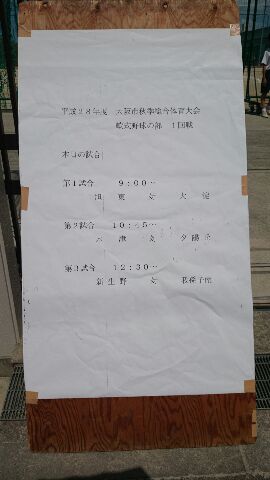 平成２８年度　大阪市秋季総合体育大会
軟式野球の部　１回戦
本日の試合
第１試合　９：００～
旭　東　対　大　淀
第２試合　１０：４５～
木　津　対　夕陽丘
第３試合　１２：３０～
新生野　対　我孫子南